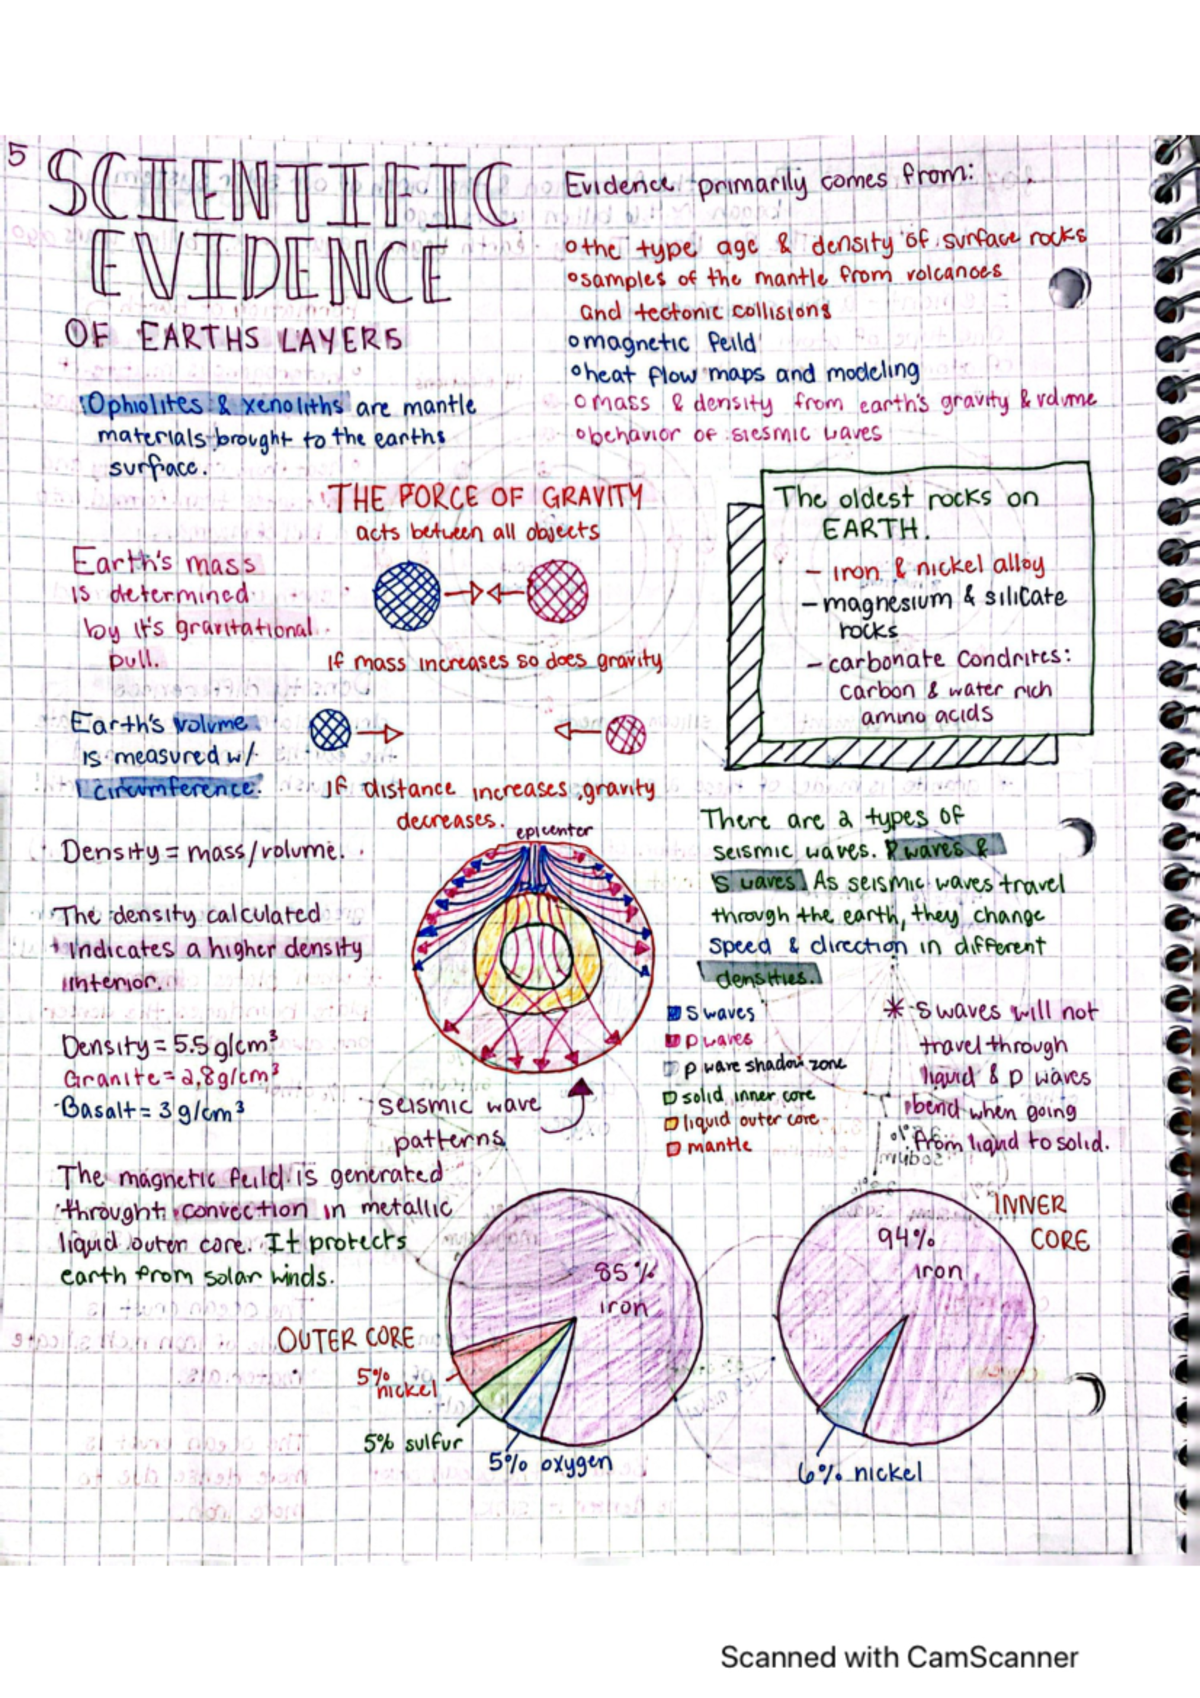 5
SCIENTIFIC
EVIDENCE
OF EARTHS LAYERS
Evidence primarily comes from:
o the type age & density of surface rocks
o samples of the mantle from volcanoes
and tectonic collisions
o magnetic feild
o heat flow maps and modeling
o mass & density from earth's gravity & volume
o behavior of siesmic waves
Ophiolites & xenoliths are mantle
materials brought to the earths
surface.
THE FORCE OF GRAVITY
acts between all objects
If mass increases so does gravity
If distance increases, gravity
decreases.
Earth's mass
is determined
by it's gravitational
pull.
Earth's volume
is measured w/
circumference.
The oldest rocks on
EARTH.
- iron & nickel alloy
- magnesium & silicate
rocks
- carbonate Condrites:
carbon & water rich
amino acids
Density = mass/volume.
The density calculated
indicates a higher density
interior.
Density = 5.5 g/cm³
Granite = 2,8 g/cm³
Basalt = 3 g/cm³
epicenter
seismic wave
patterns
There are 2 types of
seismic waves. P waves &
S waves. As seismic waves travel
through the earth, they change
speed & direction in different
densities.
S waves
p waves
p wave shadow zone
solid inner core
liquid outer core
mantle
* S waves will not
travel through
liquid & p waves
bend when going
from liquid to solid.
The magnetic feild is generated
throught convection in metallic
liquid outer core. It protects
earth from solar winds.
OUTER CORE
85%
iron
5%
nickel
5% sulfur
5% oxygen
INNER
CORE
94%
iron
6% nickel
Scanned with CamScanner